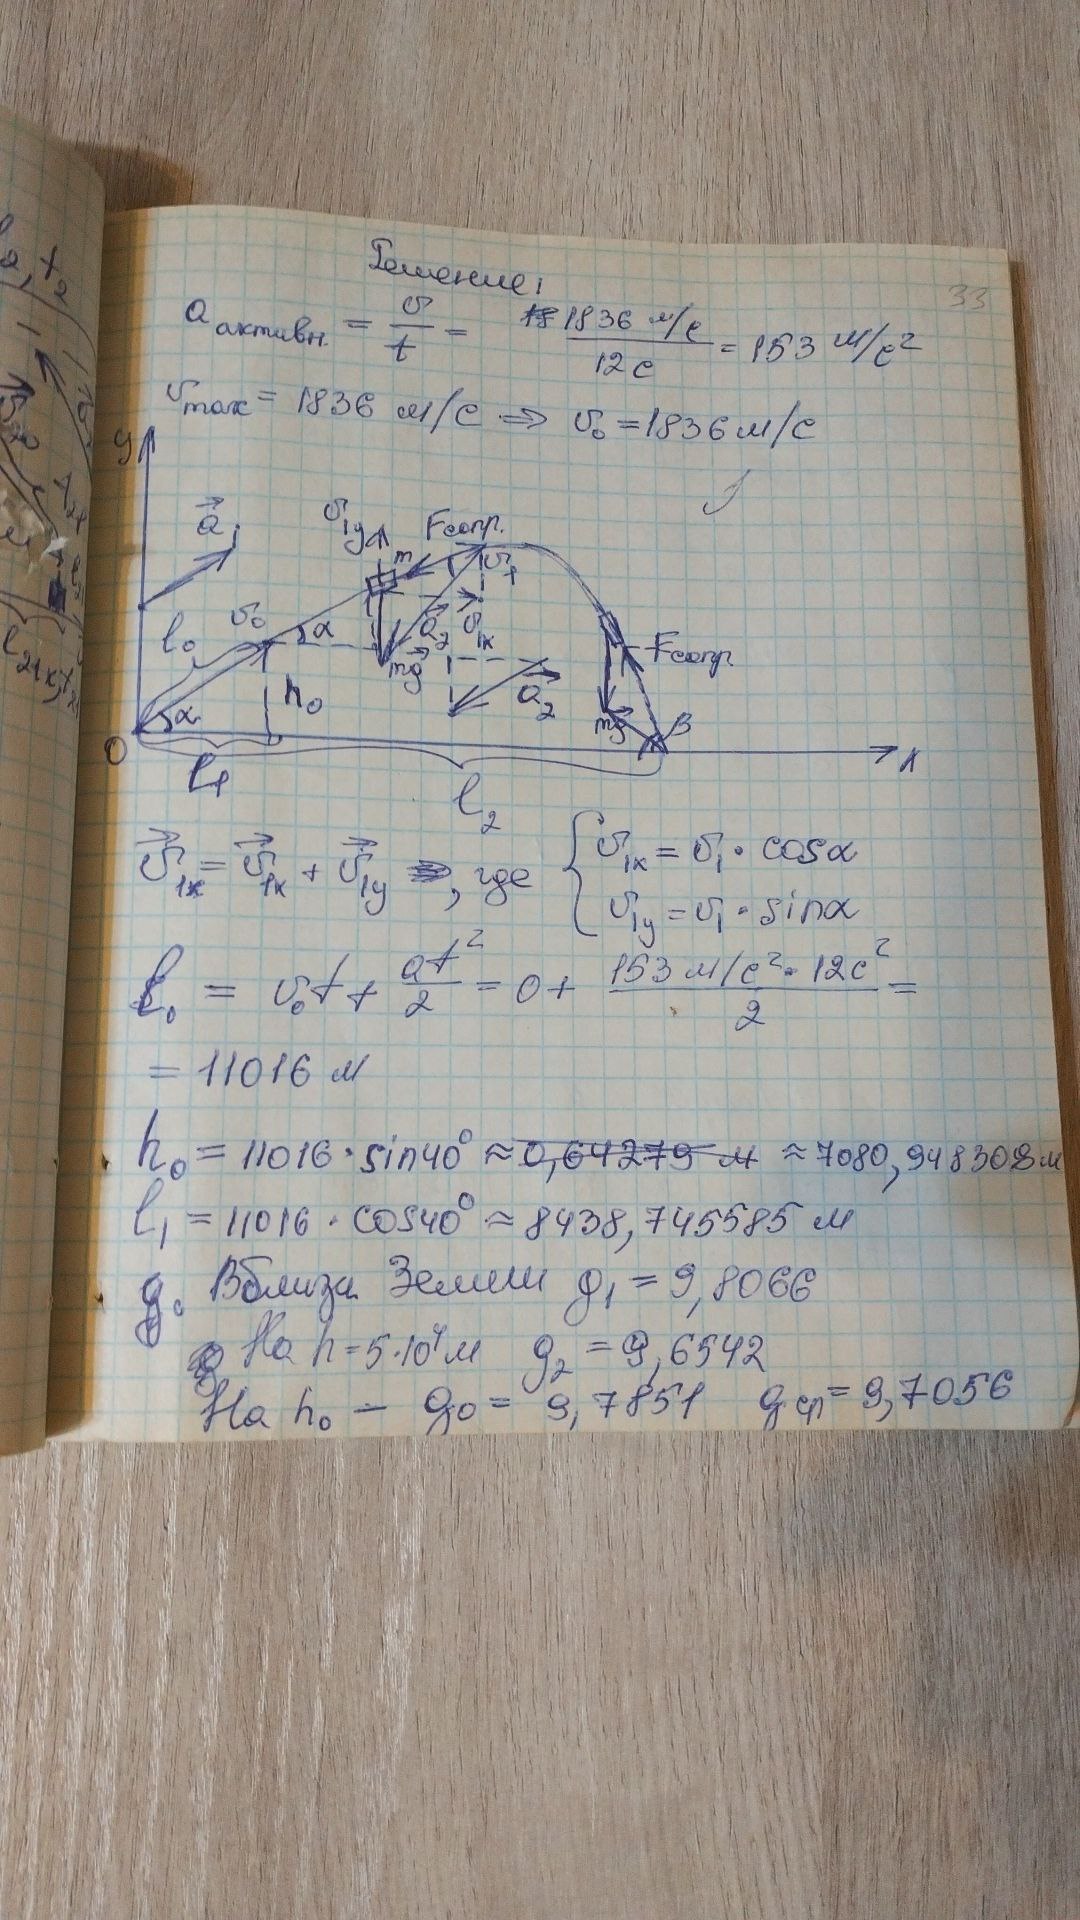 33
Решение:
a активн. = v/t = 1836 м/с / 12 с = 153 м/с²
vmax = 1836 м/с ⇒ v₀ = 1836 м/с
y
a⃗₁
v₁y
Fсопр.
m
v₁
l₀
v₀
α
mg⃗
a⃗₂
v₁x
Fсопр.
h₀
a⃗₂
mg
α
B
O
x
l₁
l₂
v⃗₁x = v⃗₁x + v⃗₁y, где { v₁x = v₁ · cosα
v₁y = v₁ · sinα
l₀ = v₀t + at²/2 = 0 + 153 м/с² · 12с²/2 =
= 11016 м
h₀ = 11016 · sin40° ≈ 0,64279 м ≈ 7080,948308 м
l₁ = 11016 · cos40° ≈ 8438,745585 м
g. Вблизи Земли g₁ = 9,8066
На h = 5·10⁴ м g₂ = 9,6542
На h₀ — g₀ = 9,7851 gср = 9,7056